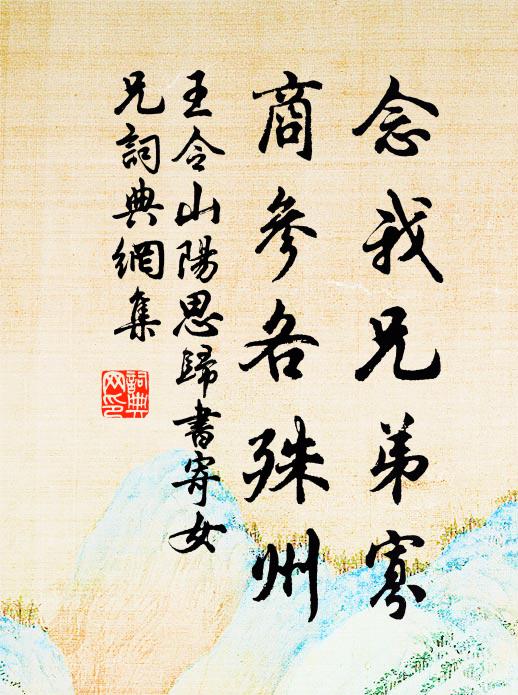 念我兄弟寡
商參各殊州
王令山陽思歸書寄女
兄詞典網集
詞典
网印